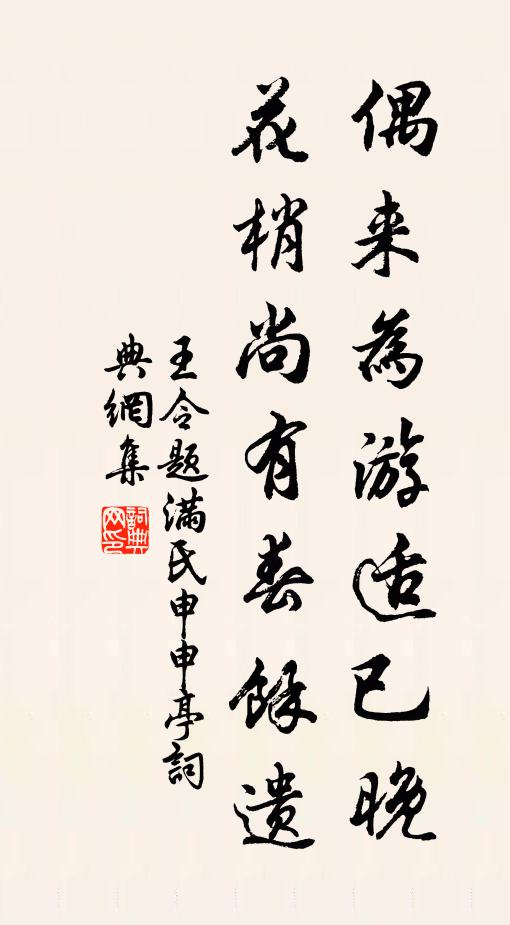 偶来為游适已晚
花梢尚有春餘遗
王令题满氏申申亭詞
典網集
詞典网印